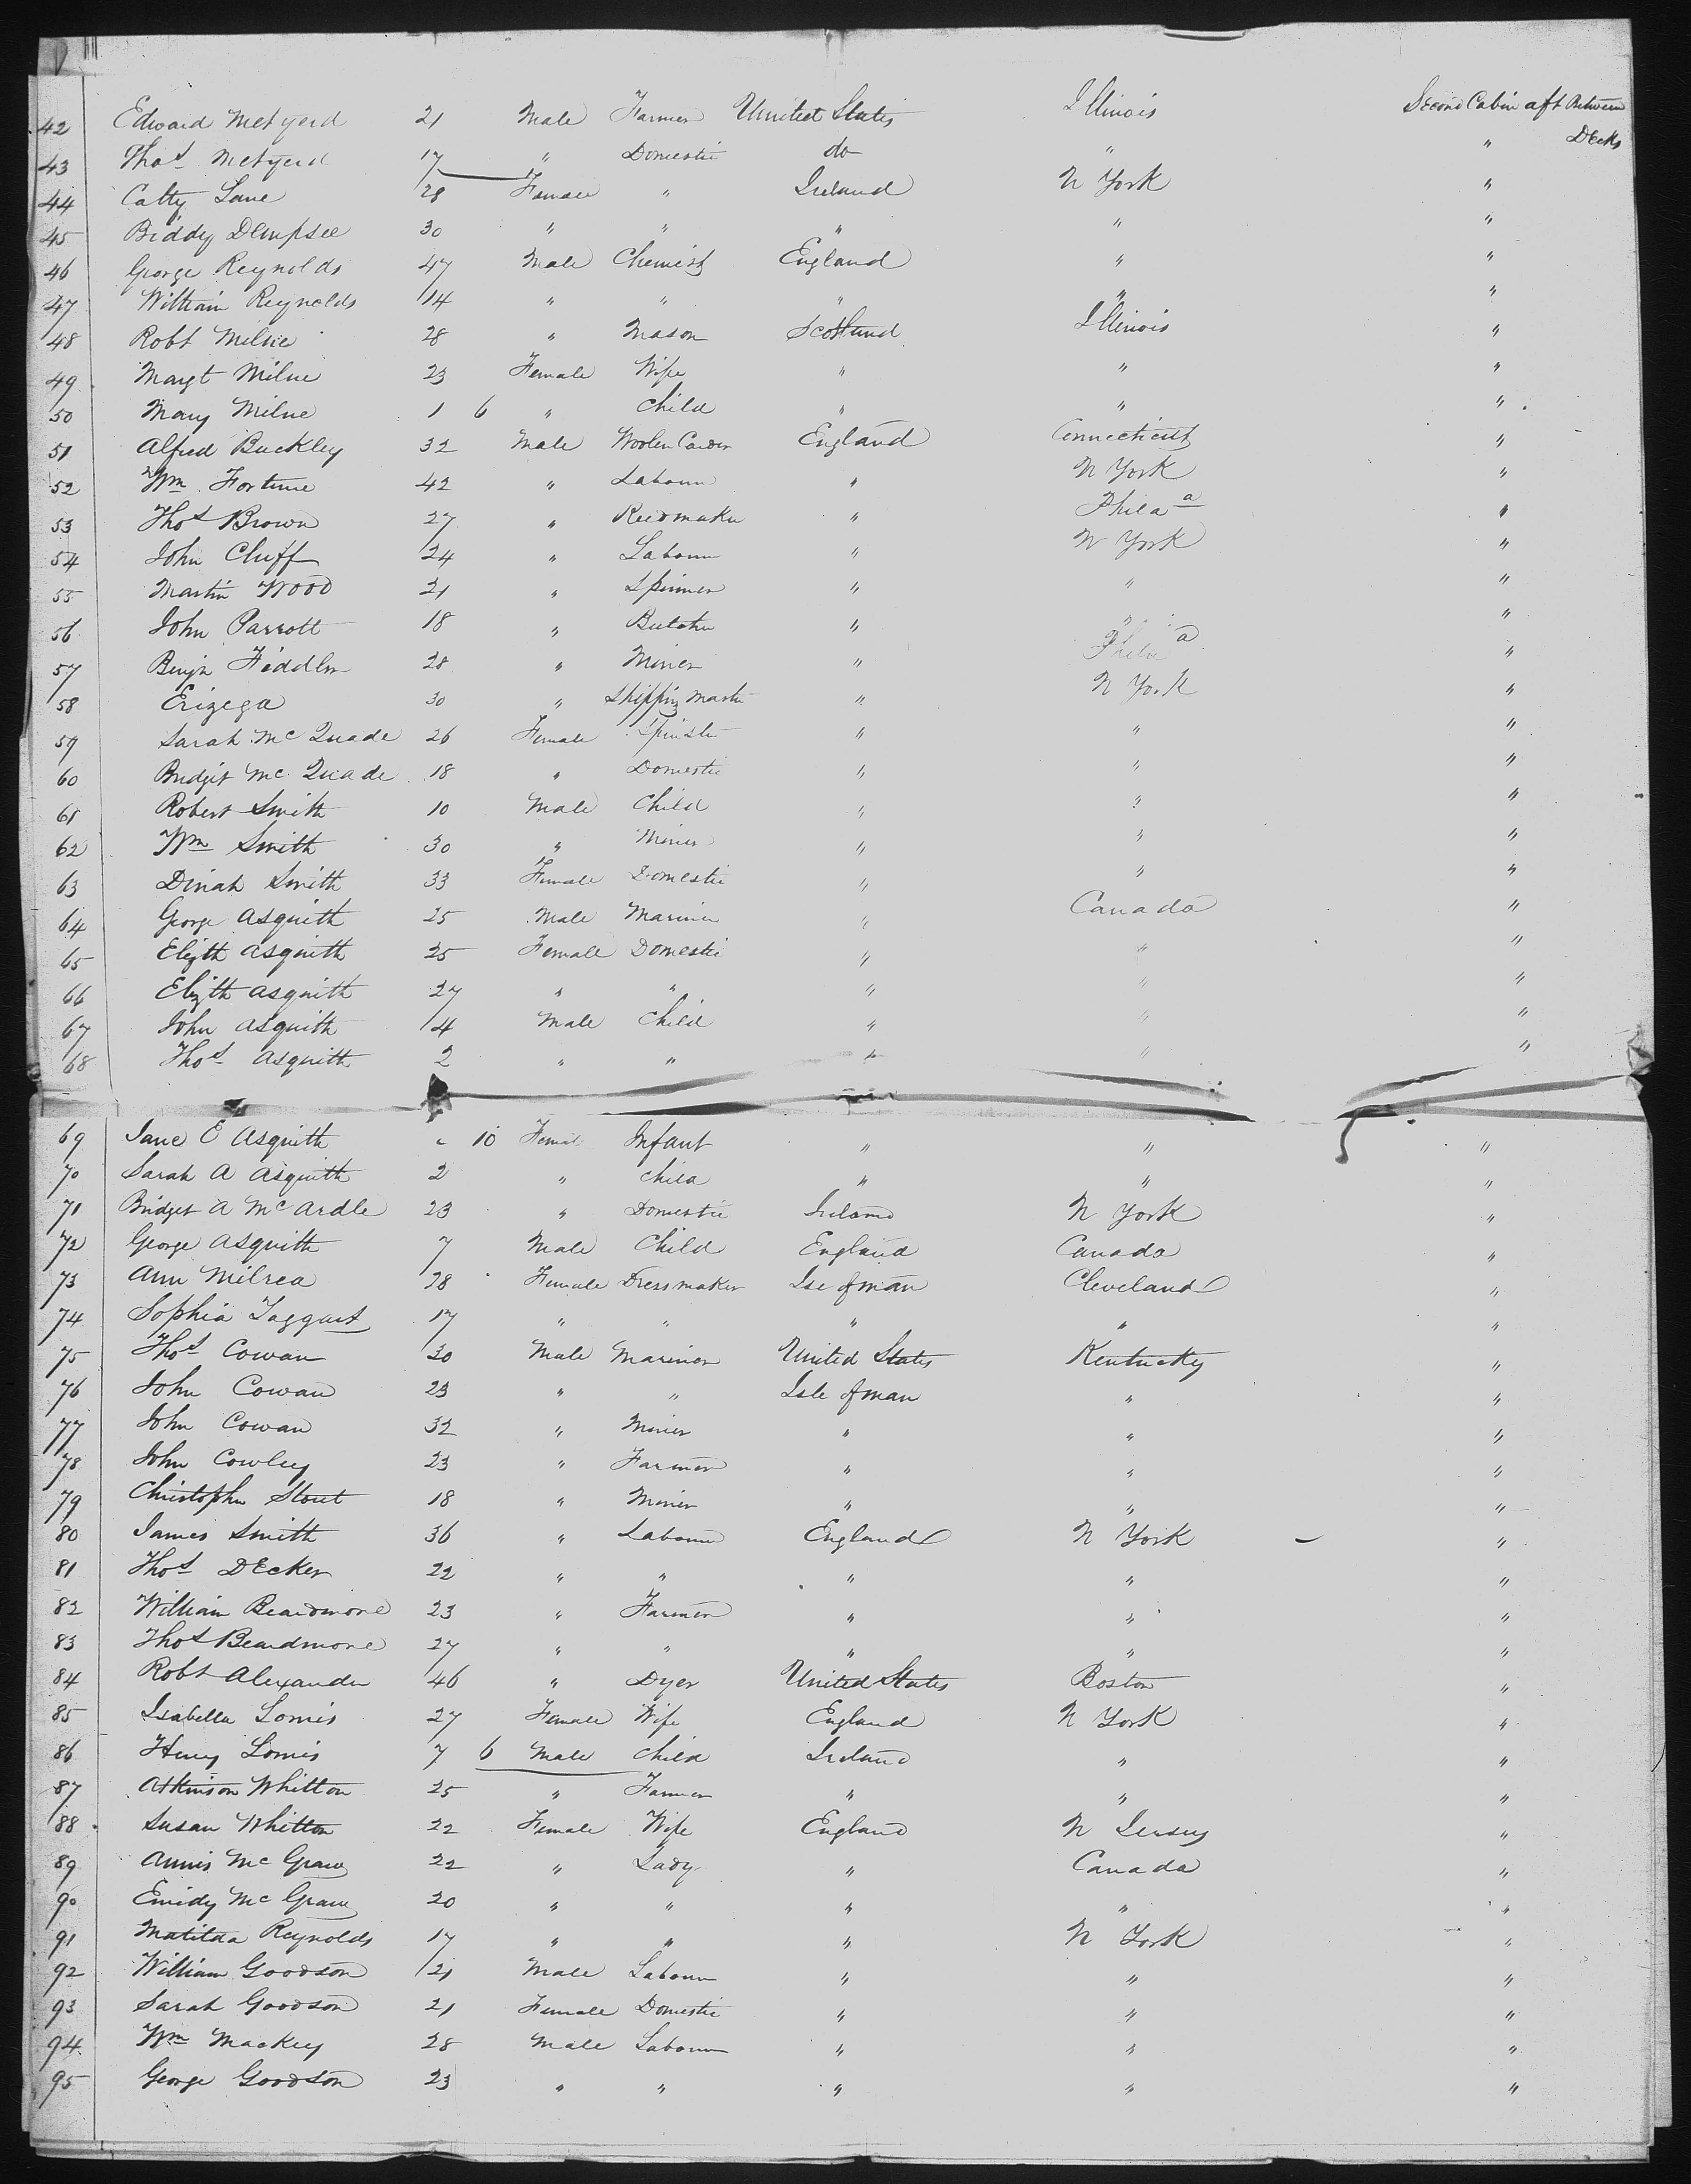 42 Edward Metyerd 21 Male Farmer United States Illinois Second Cabin aft Between Decks
43 Thos Metyerd 17 " Domestic do " "
44 Catty Lane 28 Female " Ireland N York "
45 Biddy Dempsee 30 " " " " "
46 George Reynolds 47 Male Chemist England " "
47 William Reynolds 14 " " " " "
48 Robt Milne 28 " Mason Scotland Illinois "
49 Margt Milne 23 Female Wife " " "
50 Mary Milne 1 6 " Child " " "
51 Alfred Buckley 32 Male Woolen Carder England Connecticut "
52 Wm Fortune 42 " Labourer " N York "
53 Thos Brown 27 " Reedmaker " Phila "
54 John Cluff 24 " Labourer " N York "
55 Martin Wood 21 " Spinner " " "
56 John Parrott 18 " Butcher " " "
57 Benjn Fiddler 28 " Miner " Phila "
58 Erizega 30 " Shipping Master " N York "
59 Sarah McQuade 26 Female Spinster " " "
60 Bridget McQuade 18 " Domestic " " "
61 Robert Smith 10 Male Child " " "
62 Wm Smith 30 " Miner " " "
63 Dinah Smith 33 Female Domestic " " "
64 George Asquith 25 Male Mariner " Canada "
65 Elizth Asquith 25 Female Domestic " " "
66 Elizth Asquith 27 " " " " "
67 John Asquith 4 Male Child " " "
68 Thos Asquith 2 " " " " "
69 Jane E Asquith " 10 Female Infant " " "
70 Sarah A Asquith 2 " Child " " "
71 Bridget A McArdle 23 " Domestic Ireland N York "
72 George Asquith 7 Male Child England Canada "
73 Ann Milrea 28 Female Dressmaker Isle of man Cleveland "
74 Sophia Taggart 17 " " " " "
75 Thos Cowan 30 Male Mariner United States Kentucky "
76 John Cowan 23 " " Isle of man " "
77 John Cowan 32 " Miner " " "
78 John Cowley 23 " Farmer " " "
79 Christopher Stout 18 " Miner " " "
80 James Smith 36 " Labourer England N York "
81 Thos Decker 22 " " " " "
82 William Beardmore 23 " Farmer " " "
83 Thos Beardmore 27 " " " " "
84 Robt Alexander 46 " Dyer United States Boston "
85 Isabella Lomis 27 Female Wife England N York "
86 Henry Lomis 7 6 Male Child Ireland " "
87 Atkinson Whitton 25 " Farmer " " "
88 Susan Whitton 22 Female Wife England N Jersey "
89 Annis McGraw 22 " Lady " Canada "
90 Emidy McGraw 20 " " " " "
91 Matilda Reynolds 17 " " " N York "
92 William Goodson 21 Male Labourer " " "
93 Sarah Goodson 21 Female Domestic " " "
94 Wm Mackey 28 Male Labourer " " "
95 George Goodson 23 " " " " "